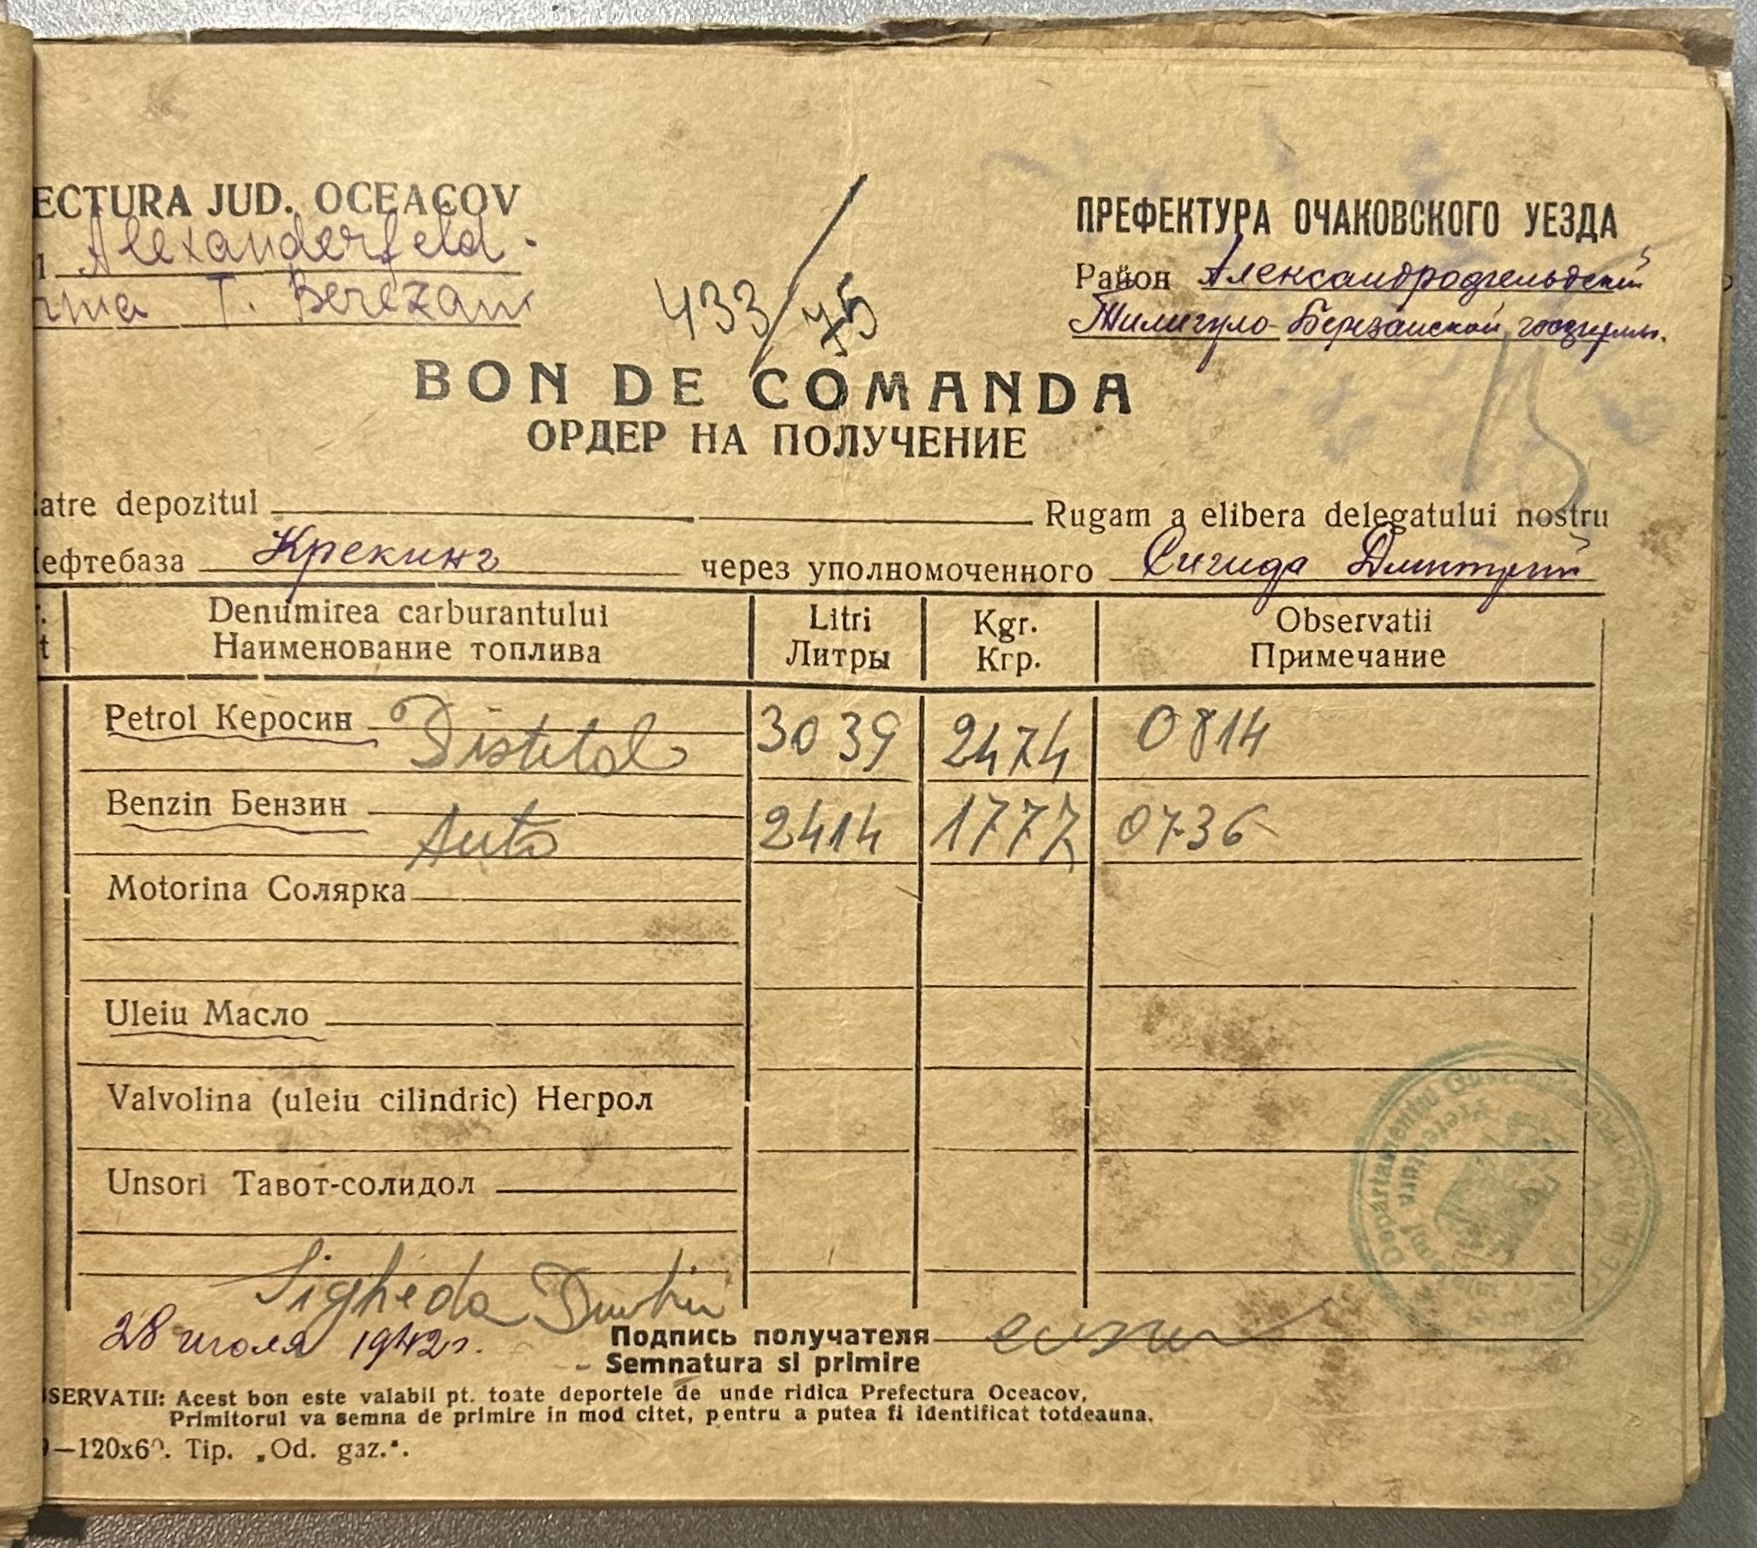 ECTURA JUD. OCEACOV
ПРЕФЕКТУРА ОЧАКОВСКОГО УЕЗДА
Alexanderfeld.
Район Александрофельдский
T. Berezani
Тилигуло-Березанской госфермы.
433/75
BON DE COMANDA
ОРДЕР НА ПОЛУЧЕНИЕ
atre depozitul Rugam a elibera delegatului nostru
ефтебаза Крекинг через уполномоченного Сигида Дмитрий
Denumirea carburantului Litri Kgr. Observatii
Наименование топлива Литры Кгр. Примечание
Petrol Керосин Distilat 3039 2474 0814
Benzin Бензин Auto 2414 1777 0736
Motorina Солярка
Uleiu Масло
Valvolina (uleiu cilindric) Негрол
Unsori Тавот-солидол
Sigheda Dmitri
28 июля 1942 г. Подпись получателя
Semnatura si primire
SERVATII: Acest bon este valabil pt. toate deportele de unde ridica Prefectura Oceacov,
Primitorul va semna de primire in mod citet, pentru a putea fi identificat totdeauna.
—120x60. Tip. „Od. gaz.".
Prefectura